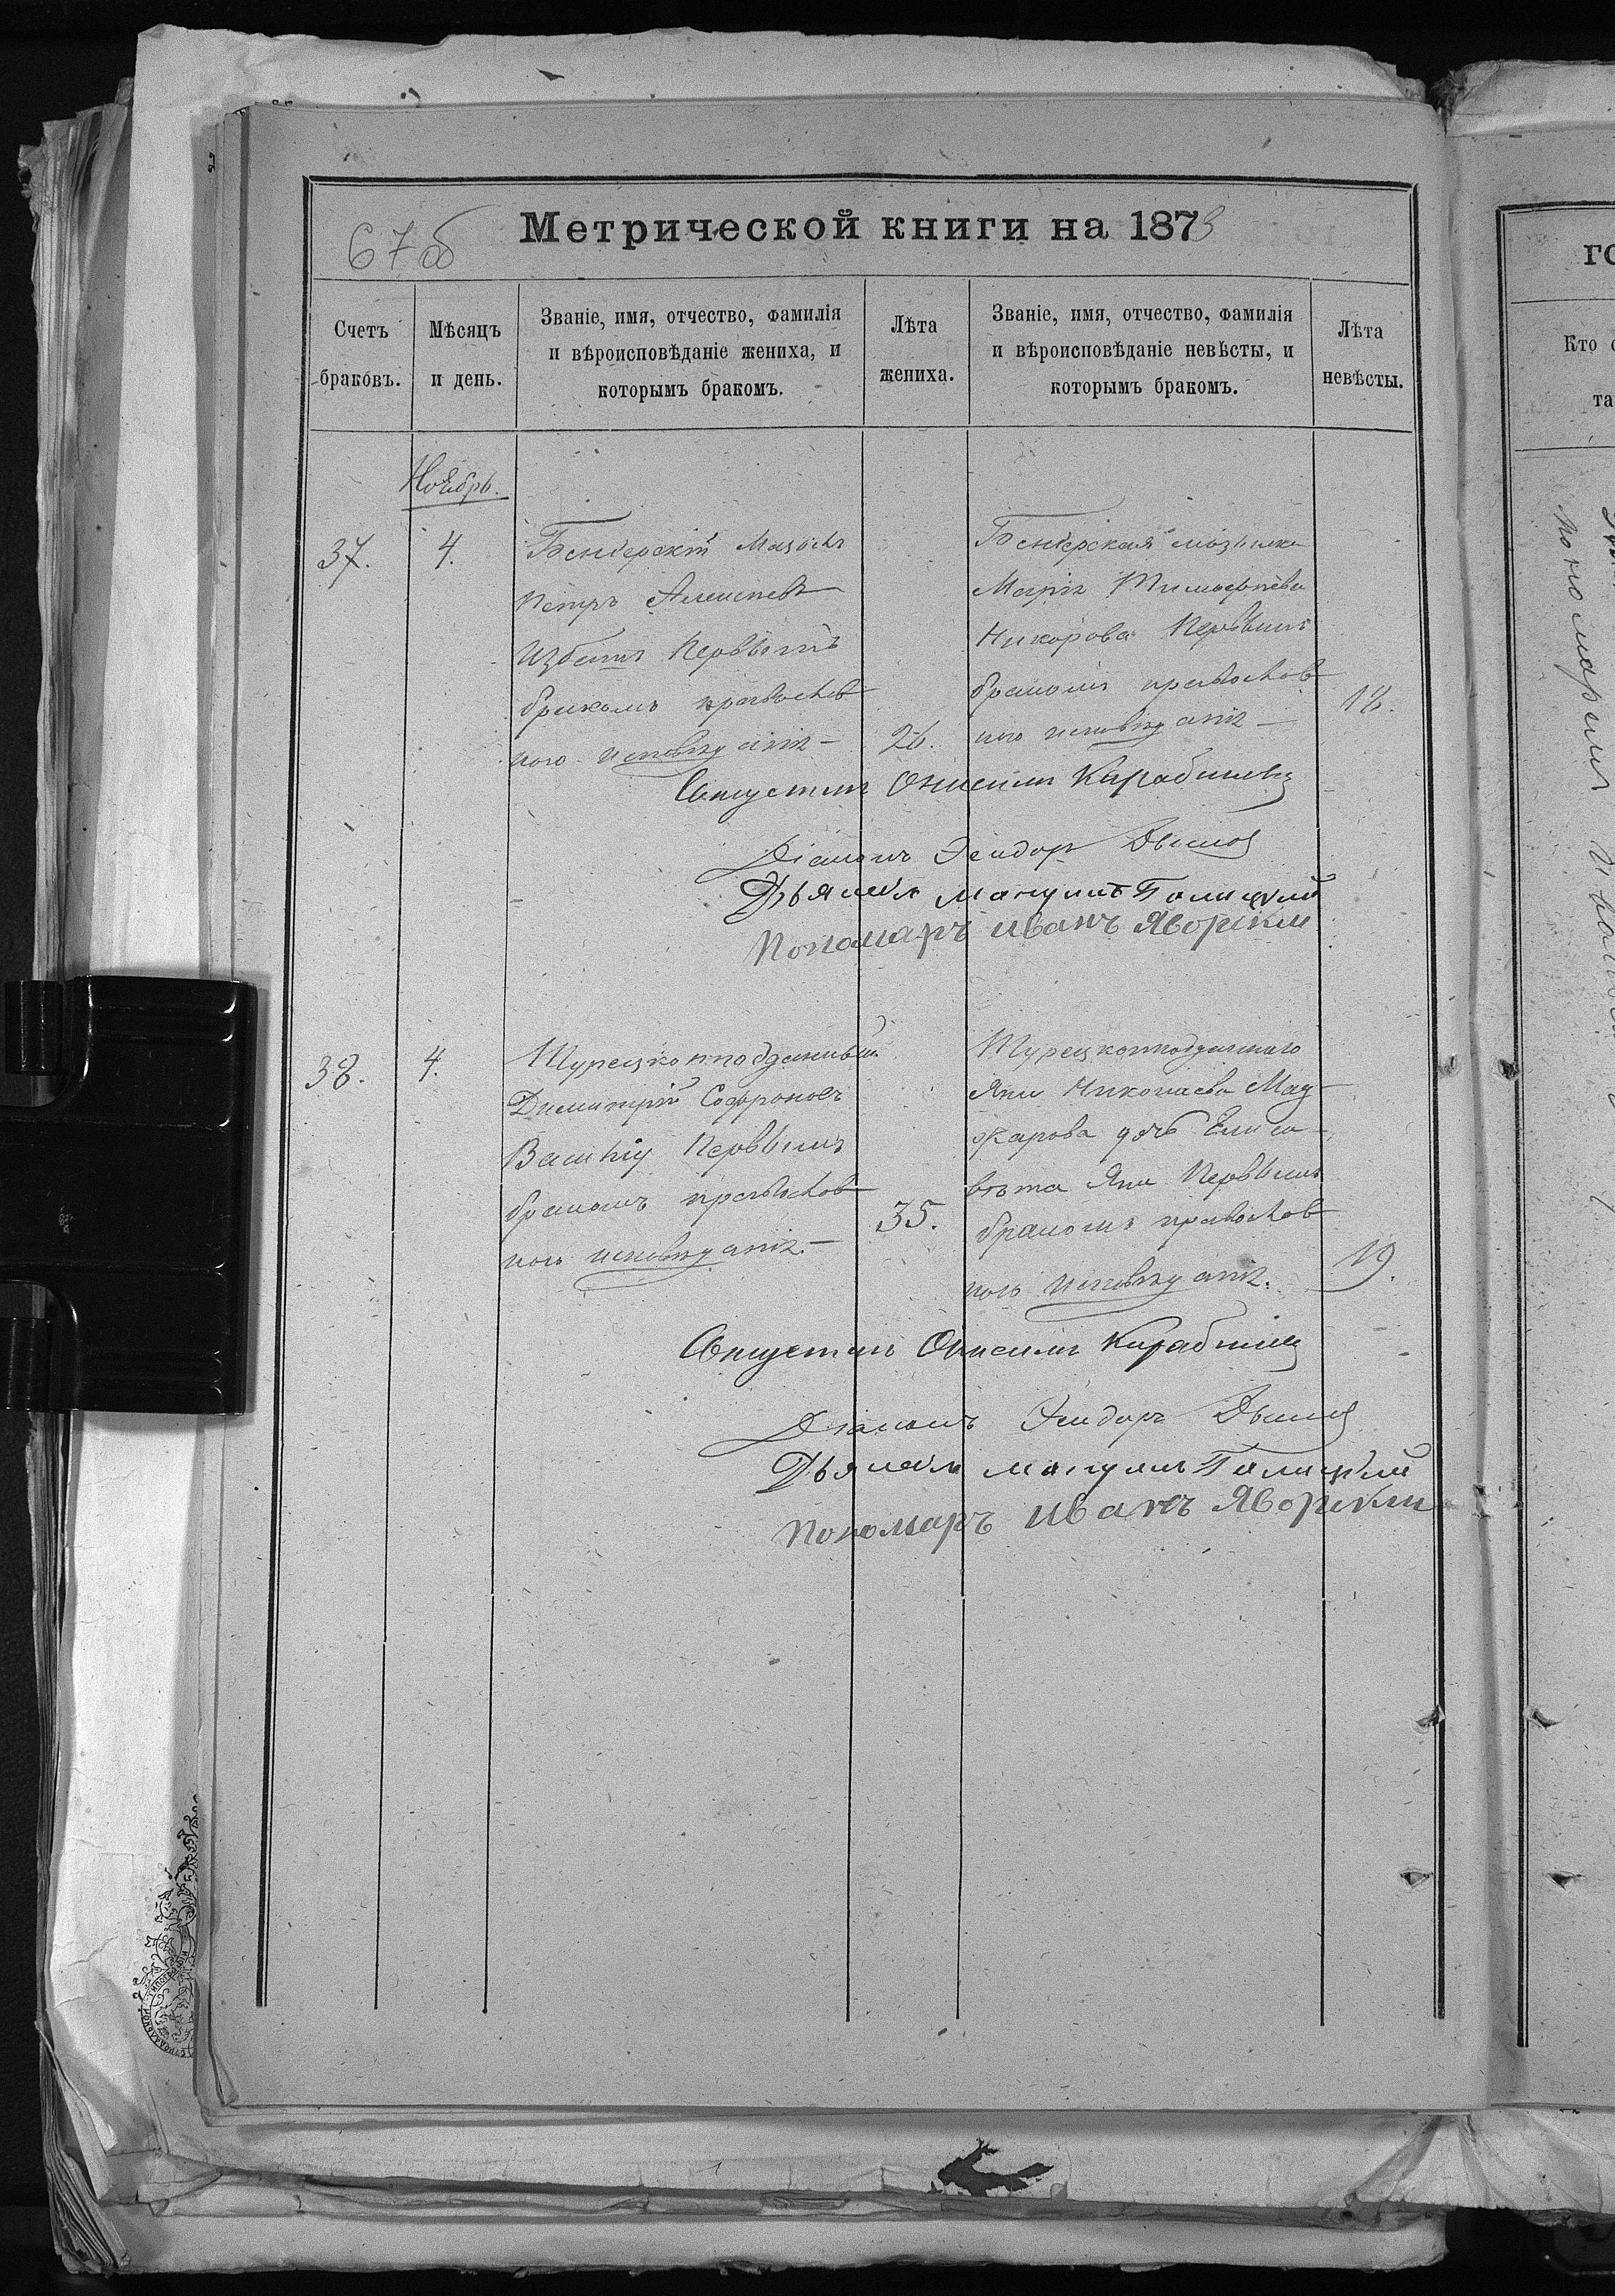 67 об
Метрической книги на 1873
Счетъ браковъ.
Мѣсяцъ и день.
Званіе, имя, отчество, фамилія и вѣроисповѣданіе жениха, и которымъ бракомъ.
Лѣта жениха.
Званіе, имя, отчество, фамилія и вѣроисповѣданіе невѣсты, и которымъ бракомъ.
Лѣта невѣсты.
Ноябрь.
37.
4.
Бендерскій
Петръ Алексѣевъ
первымъ
бракомъ православ
ного исповѣданія
26.
Бендерская
Марія Тимофѣева
Никорова первымъ
бракомъ православ
ного исповѣданія
18.
Священникъ
Діаконъ Ѳеодоръ
Дьячекъ Мануилъ Галицкий
Пономаръ Иванъ Яворский
38.
4.
Турецкоподданный
Димитрій Софроновъ
первымъ
бракомъ православ
ного исповѣданія.
35.
Турецкоподданнаго
Яни Николаева Мад
жарова дочь Елиса
вета Яни первымъ
бракомъ православ
ного исповѣданія.
19.
Священникъ
Діаконъ Ѳеодоръ
Дьячекъ Мануилъ Галицкий
Пономаръ Иванъ Яворский
го
Кто с
та
пономаръ Иванъ